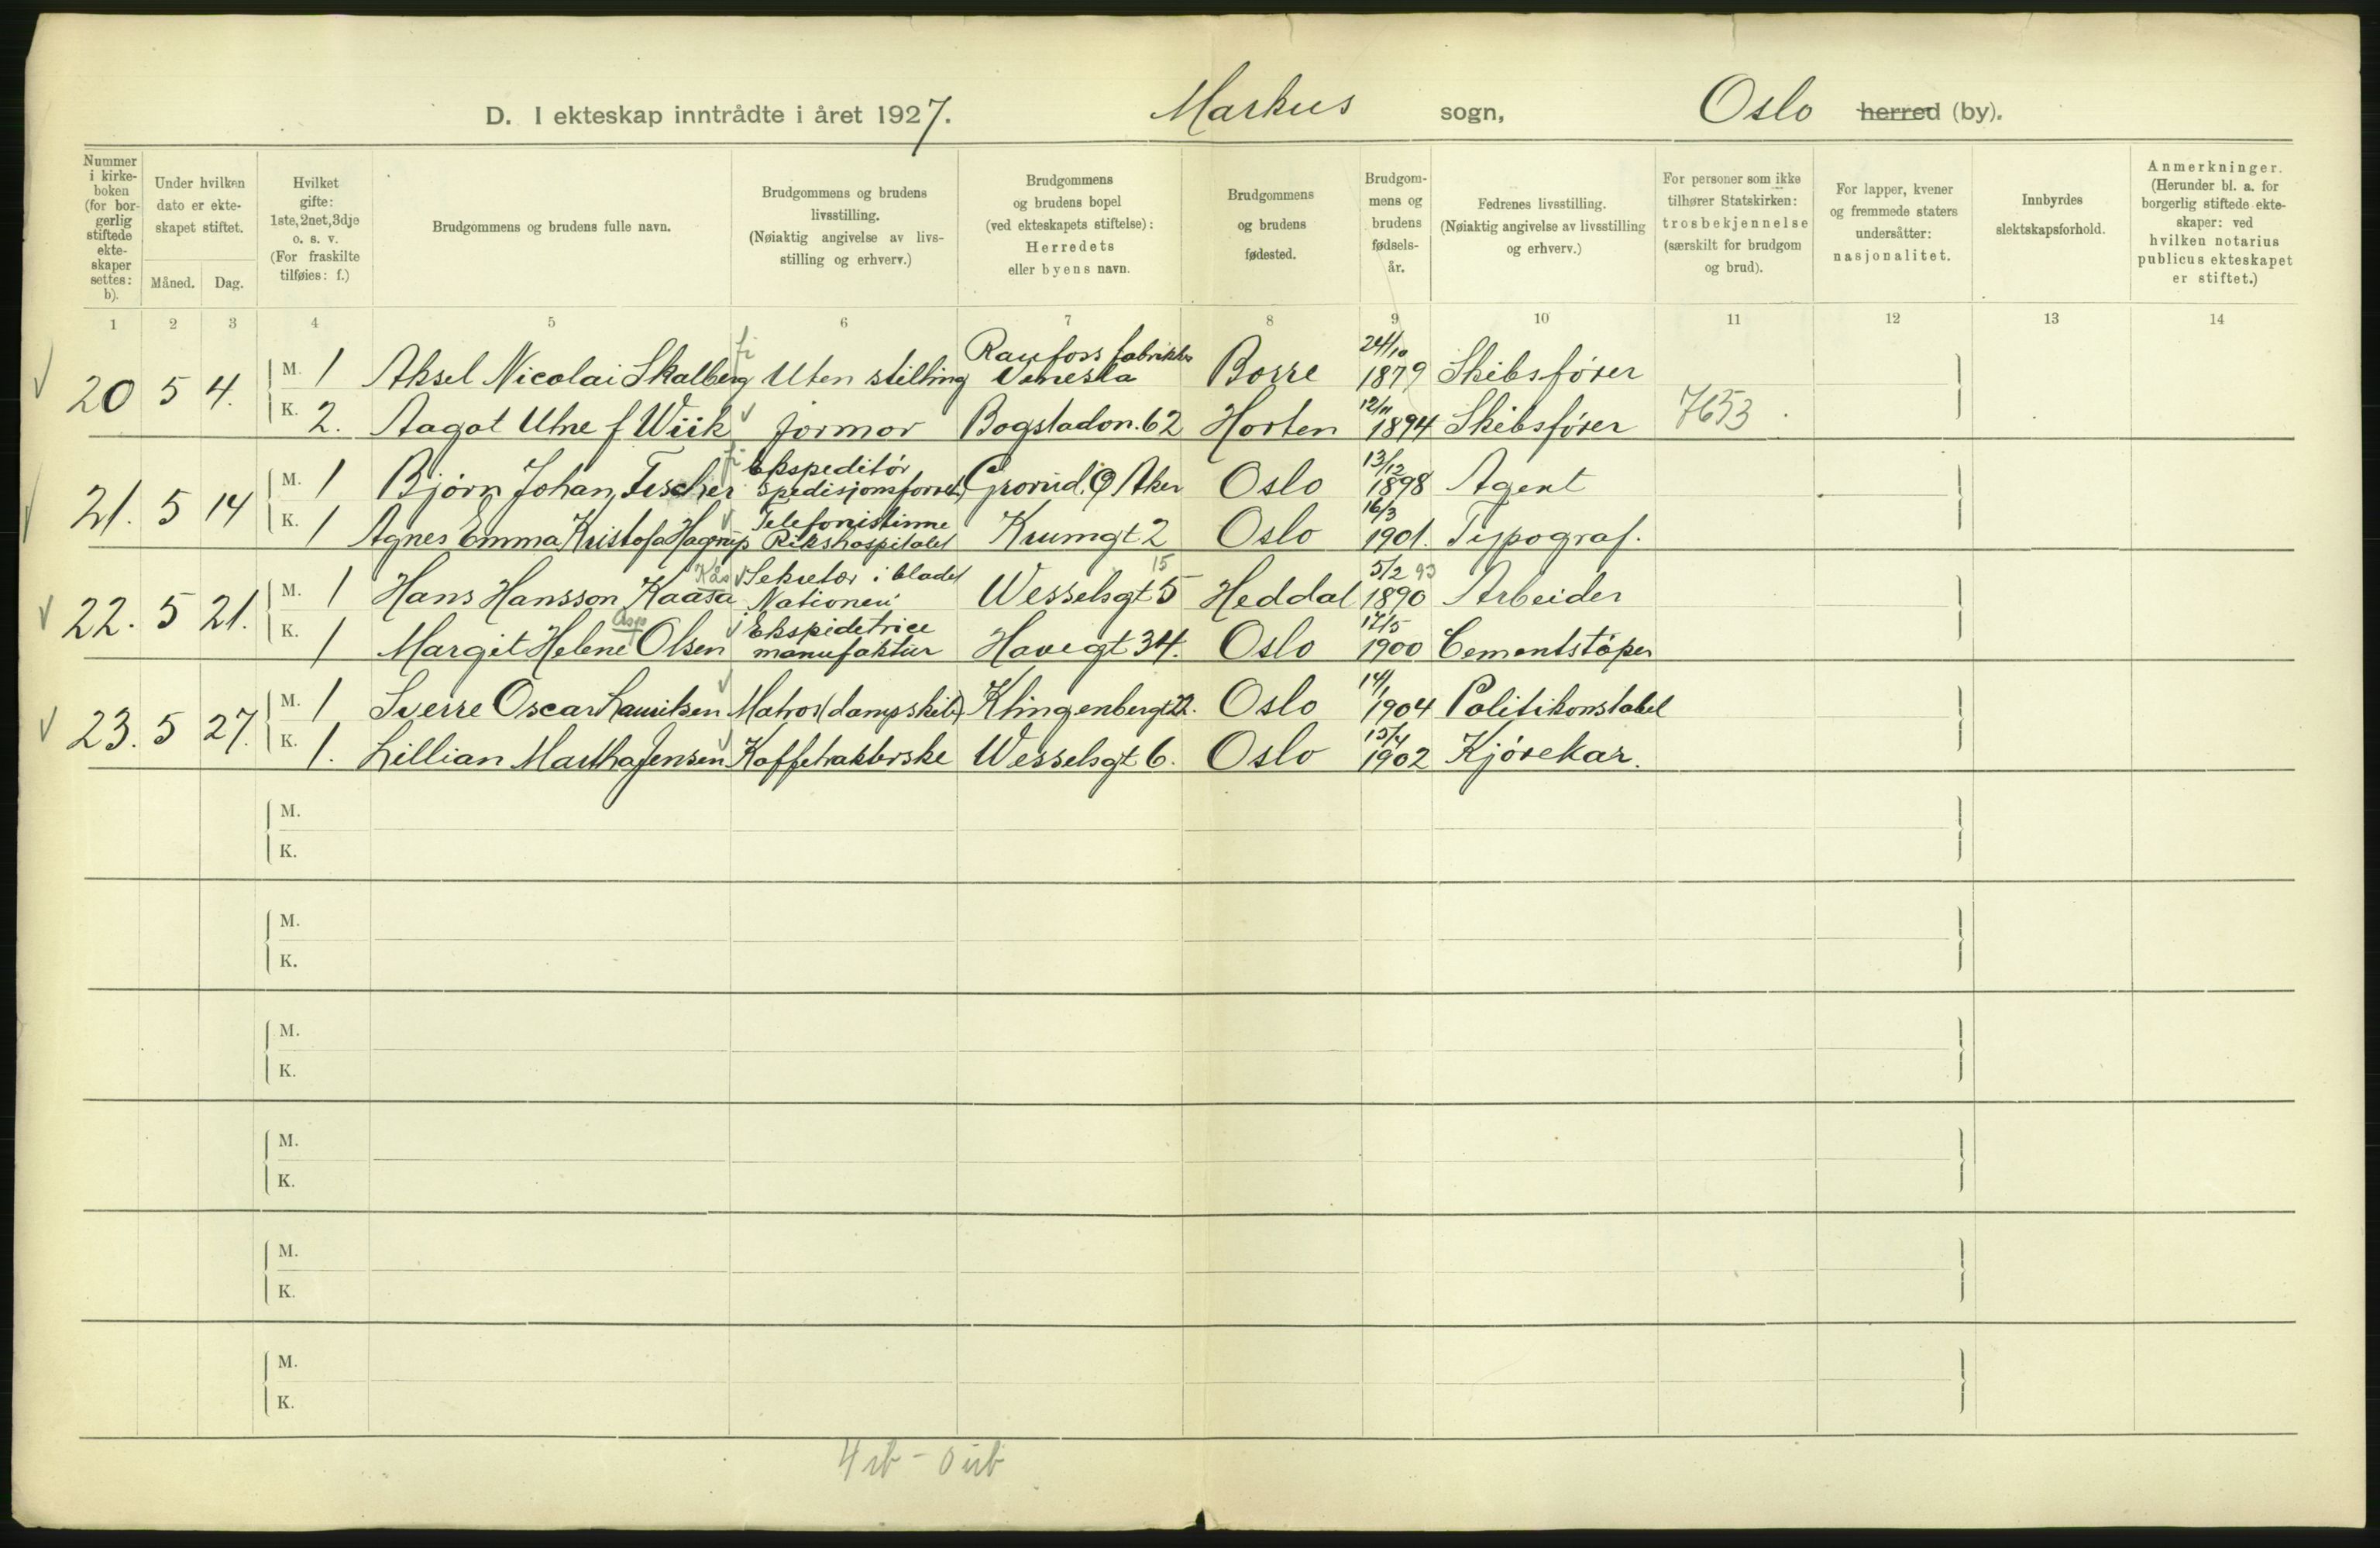 D. I ekteskap inntrådte i året 1927. Markus sogn, Oslo herred (by).
Nummer i kirkeboken (for borgerlig stiftede ekteskaper settes: b).
Under hvilken dato er ekteskapet stiftet.
Måned. Dag.
Hvilket gifte: 1ste, 2net, 3dje o. s. v. (For fraskilte tilføies: f.)
Brudgommens og brudens fulle navn.
Brudgommens og brudens livsstilling. (Nøiaktig angivelse av livsstilling og erhverv.)
Brudgommens og brudens bopel (ved ekteskapets stiftelse): Herredets eller byens navn.
Brudgommens og brudens fødested.
Brudgommens og brudens fødselsår.
Fedrenes livsstilling. (Nøiaktig angivelse av livsstilling og erhverv.)
For personer som ikke tilhører Statskirken: trosbekjennelse (særskilt for brudgom og brud).
For lapper, kvener og fremmede staters undersåtter: nasjonalitet.
Innbyrdes slektskapsforhold.
Anmerkninger. (Herunder bl. a. for borgerlig stiftede ekteskaper: ved hvilken notarius publicus ekteskapet er stiftet.)
1 2 3 4 5 6 7 8 9 10 11 12 13 14
20 5 4. M. 1 Aksel Nicolai Skalberg Uten stilling Raufoss fabrikker Borre 24/10 1879 Skibsfører
K. 2. Aagot Utne f Wiik Jormor Bogstadvn. 62 Horten 12/11 1894 Skibsfører 7653
21. 5 14 M. 1 Bjørn Johan Fischer Ekspeditør Spedisjonsforretn. Grorud. Ø Aker Oslo 13/12 1898 Agent
K. 1 Agnes Emma Kristofa Hagrup Telefonistinne Rikshospitalet Krumgt 2 Oslo 16/3 1901. Typograf.
22. 5 21. M. 1 Hans Hansson Kaasa Kås Sekretær i bladet Nationen Wesselsgt 5 15 Heddal 5/2 93 1890 Arbeider
K. 1 Margit Helene Olsen Ekspidetrice manufaktur Havegt 34. Oslo 17/5 1900 Cementstøper
23. 5 27. M. 1 Sverre Oscar Lauritsen Matros (dampskib) Klingenberggt 22. Oslo 14/1 1904 Politikonstabel
K. 1. Lillian Martha Jensen Kaffetrakterske Wesselsgt 6. Oslo 15/4 1902 Kjørekar.
M.
K.
M.
K.
M.
K.
M.
K.
M.
K.
M.
K.